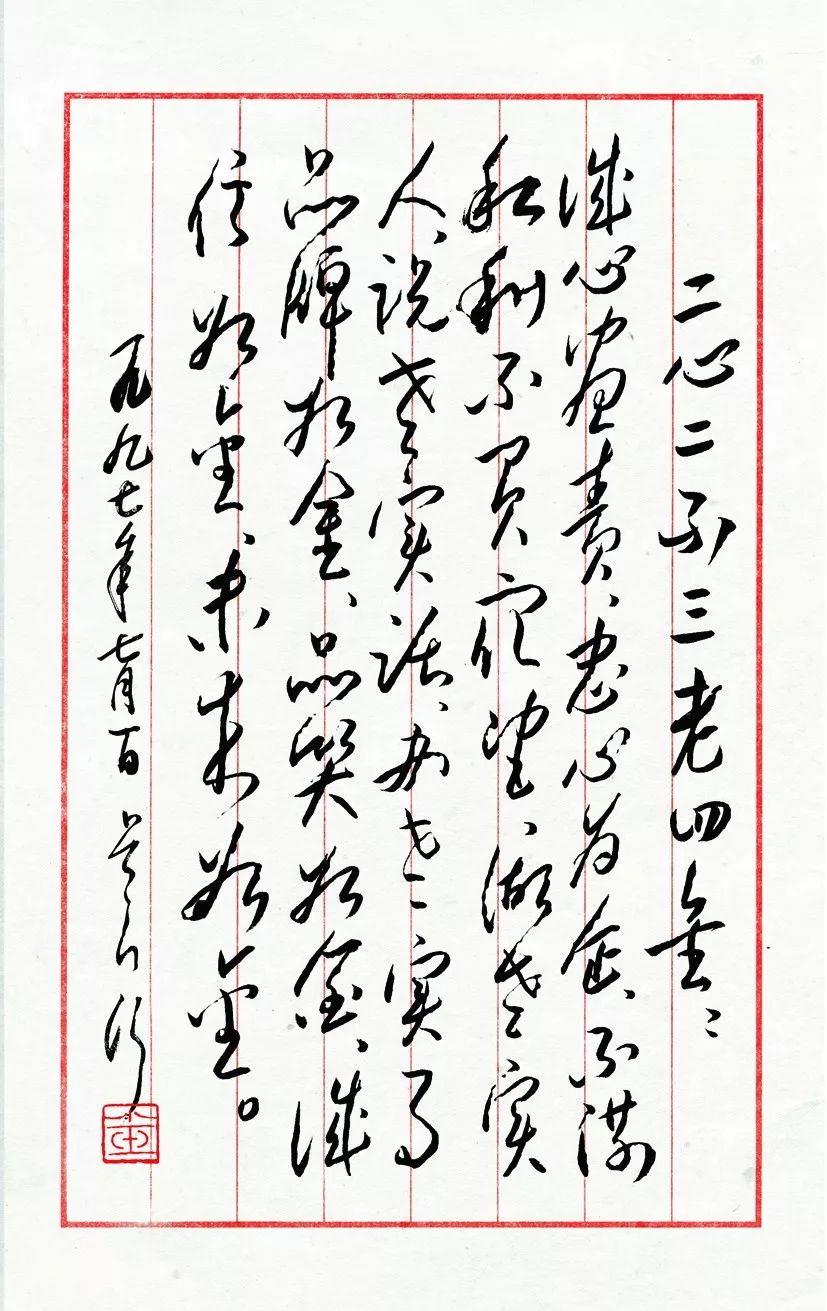 二心二不三老四金：
诚心尽责、忠心为企、不谋
私利不买官位望、做老实
人、说老实话、办老实事
品牌如金、品质如金、诚
信如金、未来如金。
一九九七年七月一日